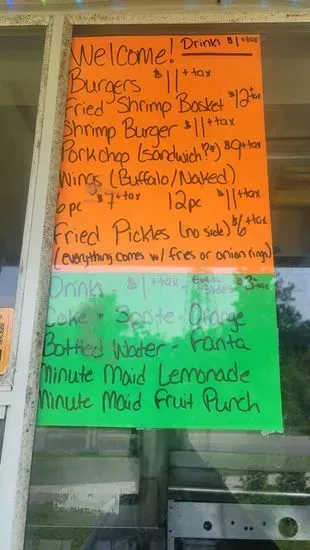 Welcome! Drinks $1+tax
Burgers $11+tax
Fried Shrimp Basket $12+tax
Shrimp Burger $11+tax
Porkchop (sandwich?*) $9+tax
Wings (Buffalo/Naked)
6pc $7+tax 12pc $11+tax
Fried Pickles (no side) $6+tax
(everything comes w/ fries or onion rings)
Drinks $1+tax Extra Sides $3+tax
Coke - Sprite - Orange
Bottled Water - Fanta
Minute Maid Lemonade
Minute Maid Fruit Punch